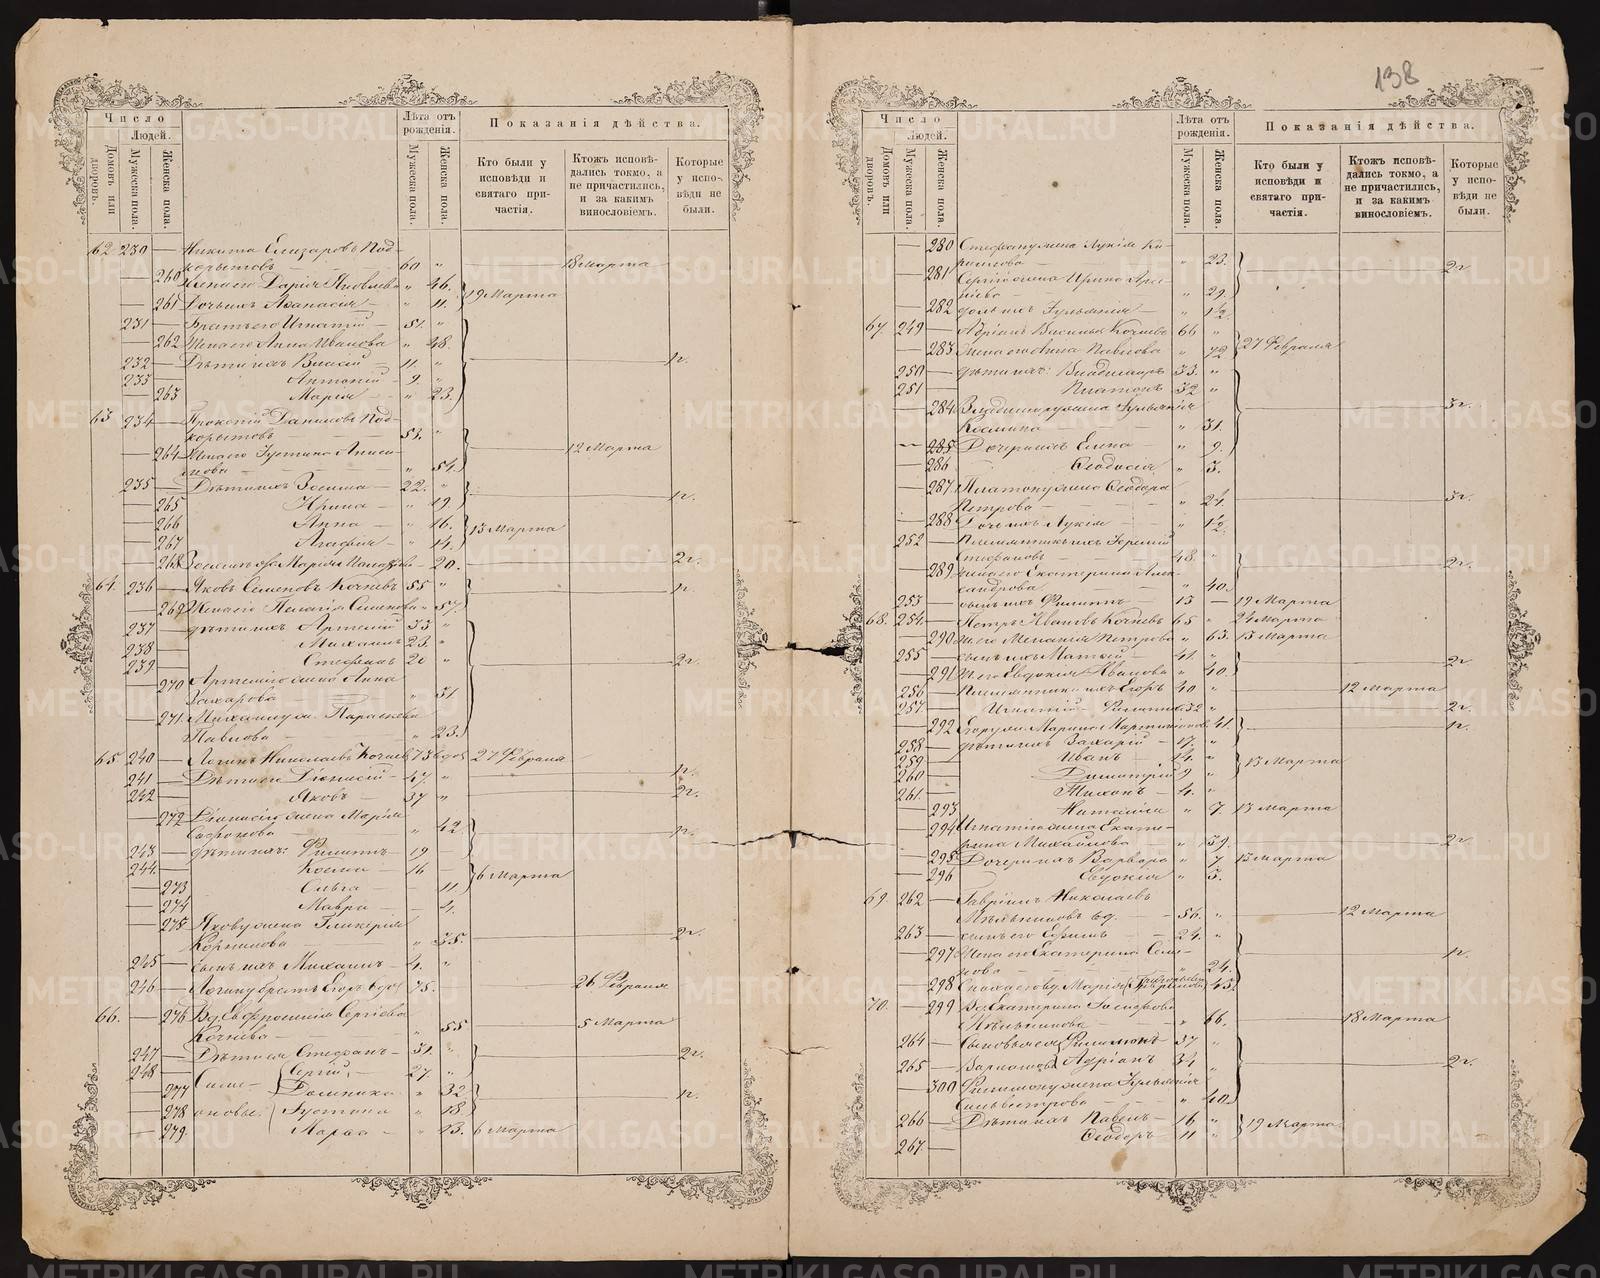 138
Число
Людей.
Домовъ или дворовъ.
Мужеска пола.
Женска пола.
Лѣта отъ рожденія.
Мужеска пола.
Женска пола.
Показанія дѣйства.
Кто были у исповѣди и святаго причастія.
Ктожъ исповѣдались токмо, а не причастились, и за какимъ винословіемъ.
Которые у исповѣди не были.
62 230 — Никита Елизаровъ Под-
корытовъ — 60 " 18 Марта
260 Жена его Дарья Яковлева " 46.
19 Марта
261 Дочь ихъ Аѳанасія — " 11.
231 — Братъ его Игнатій — 51. "
262 Жена его Анна Иванова " 48.
232 — Дѣти ихъ Власій — 11. " 1 г.
233 Антоній — 9. "
263 Марья — " 23.
63 234 — Прокопій Даниловъ Под-
корытовъ 53. "
12 Марта
264 Жена его Іустина Аниси-
мова — " 54.
235 — Дѣти ихъ Зосима — 22. "
1 г.
265 Ирина — " 19.
266 Анна — " 16.
13 Марта
267 Агафья — " 14.
268 Марья " 20. 2 г.
64. 236 — Яковъ Семеновъ Кочневъ 55 " 1 г.
269 Жена его Пелагія Семенова " 57.
237 — дѣти ихъ Артемій 33 "
238 Михаилъ 23. "
239 Стефанъ 20 " 2 г.
270 Артемія жена Анна
Захарова " 31
271. Михаила ж. Параскева
Павлова — " 23.
65 240 — Логинъ Николаевъ Кочневъ 73 вдов 27 Февраля
241 — Дѣти его Діонисій — 47. " 1 г.
242 Яковъ — 37 " 2 г.
272 Діонисія жена Марія
Сафонова — " 42 1 г.
243 — дѣти ихъ: Филиппъ 19 —
244. Косма — 16 —
6 Марта
273 Ольга — — 11
274 Мавра — — 4.
275 Якову жена Гликерія
Корнилова — " 35. 2 г.
245 — сынъ ихъ Михаилъ — 4. "
246 — Логину братъ Егоръ вдов 75. 26 Февраля
66. — 276 Вд. Евфросинія Сергіева
Кочнева — " 55 5 Марта
247 — Дѣти ея Стефанъ — 31. " 2 г.
248 — Сергій, — 27. "
277 Симе — Домника " 32 1 г.
278 оновы: Іустина " 18.
279. Марѳа — " 13. 6 Марта
Число
Людей.
Домовъ или дворовъ.
Мужеска пола.
Женска пола.
Лѣта отъ рожденія.
Мужеска пола.
Женска пола.
Показанія дѣйства.
Кто были у исповѣди и святаго причастія.
Ктожъ исповѣдались токмо, а не причастились, и за какимъ винословіемъ.
Которые у исповѣди не были.
280 Стефану жена Лукія Ки-
рилова — " 23. 2 г.
281 Сергію жена Ирина Арсе-
ніева — " 29.
282 дочь ихъ Іульянія — " 1½.
67 249 — Адріанъ Васильевъ Кочневъ 66 "
27 Февраля
283 Жена его Анна Павлова " 72
250 — дѣти ихъ: Владиміръ 33. "
251 — Платонъ 32 "
3 г.
284 Владиміру жена Іульянія
Космина — " 31.
285 Дочери ихъ Елена — " 9.
286 Ѳеодосія " 3.
287. Платону жена Ѳеодора
Петрова — " 24. 3 г.
288 Дочь ихъ Лукія — " 1½.
252 — Племянникъ ихъ Іеремій
Стефановъ — 48. " 2 г.
289 жена его Екатерина Алек-
сандрова — " 40.
253 — сынъ ихъ Филиппъ — 13 — 19 Марта
68. 254 — Петръ Ивановъ Кочневъ 65 " 24 Марта
290 ж. его Меланія Петрова " 63. 13 Марта
255 — сынъ ихъ Матѳей — 41. " 2 г.
291 Ж. его Евдокія Иванова " 40.
256 — Племянники ихъ Егоръ 40 " 12 Марта
257. — Игнатій — Филипповы 32 " 2 г.
292 Егору ж. Марина Мартиніанова " 41. 1 г.
258 — дѣти ихъ Захарій — 17. "
259 — Иванъ — 14. "
13 Марта
260 Димитрій 9 "
261. — Тихонъ — 4. "
293 Наталія " 7. 13 Марта
294 Игнатію жена Екате-
рина Михайлова " 39. 2 г.
295 Дочери ихъ Варвара " 7 13 Марта
296 Евдокія " 3.
69. 262 — Гавріилъ Николаевъ
Мѣльниковъ вд. — 56. " 12 Марта
263 — сынъ его Ефимъ — 24. "
297 Жена его Екатерина Семе-
нова — " 24. 1 г.
298 Марія 45.
70. 299 Вд. Екатерина
Мѣльникова — " 66. 18 Марта
264 — Сыновья ея Филимонъ 37 "
265 — Адріанъ 34 " 2 г.
300 Филимону жена Іульянія
Сильвестрова — " 40.
266 — Дѣти ихъ Павелъ — 16 "
19 Марта
267. — Ѳеодоръ — 11 "
METRIKI.GASO-URAL.RU